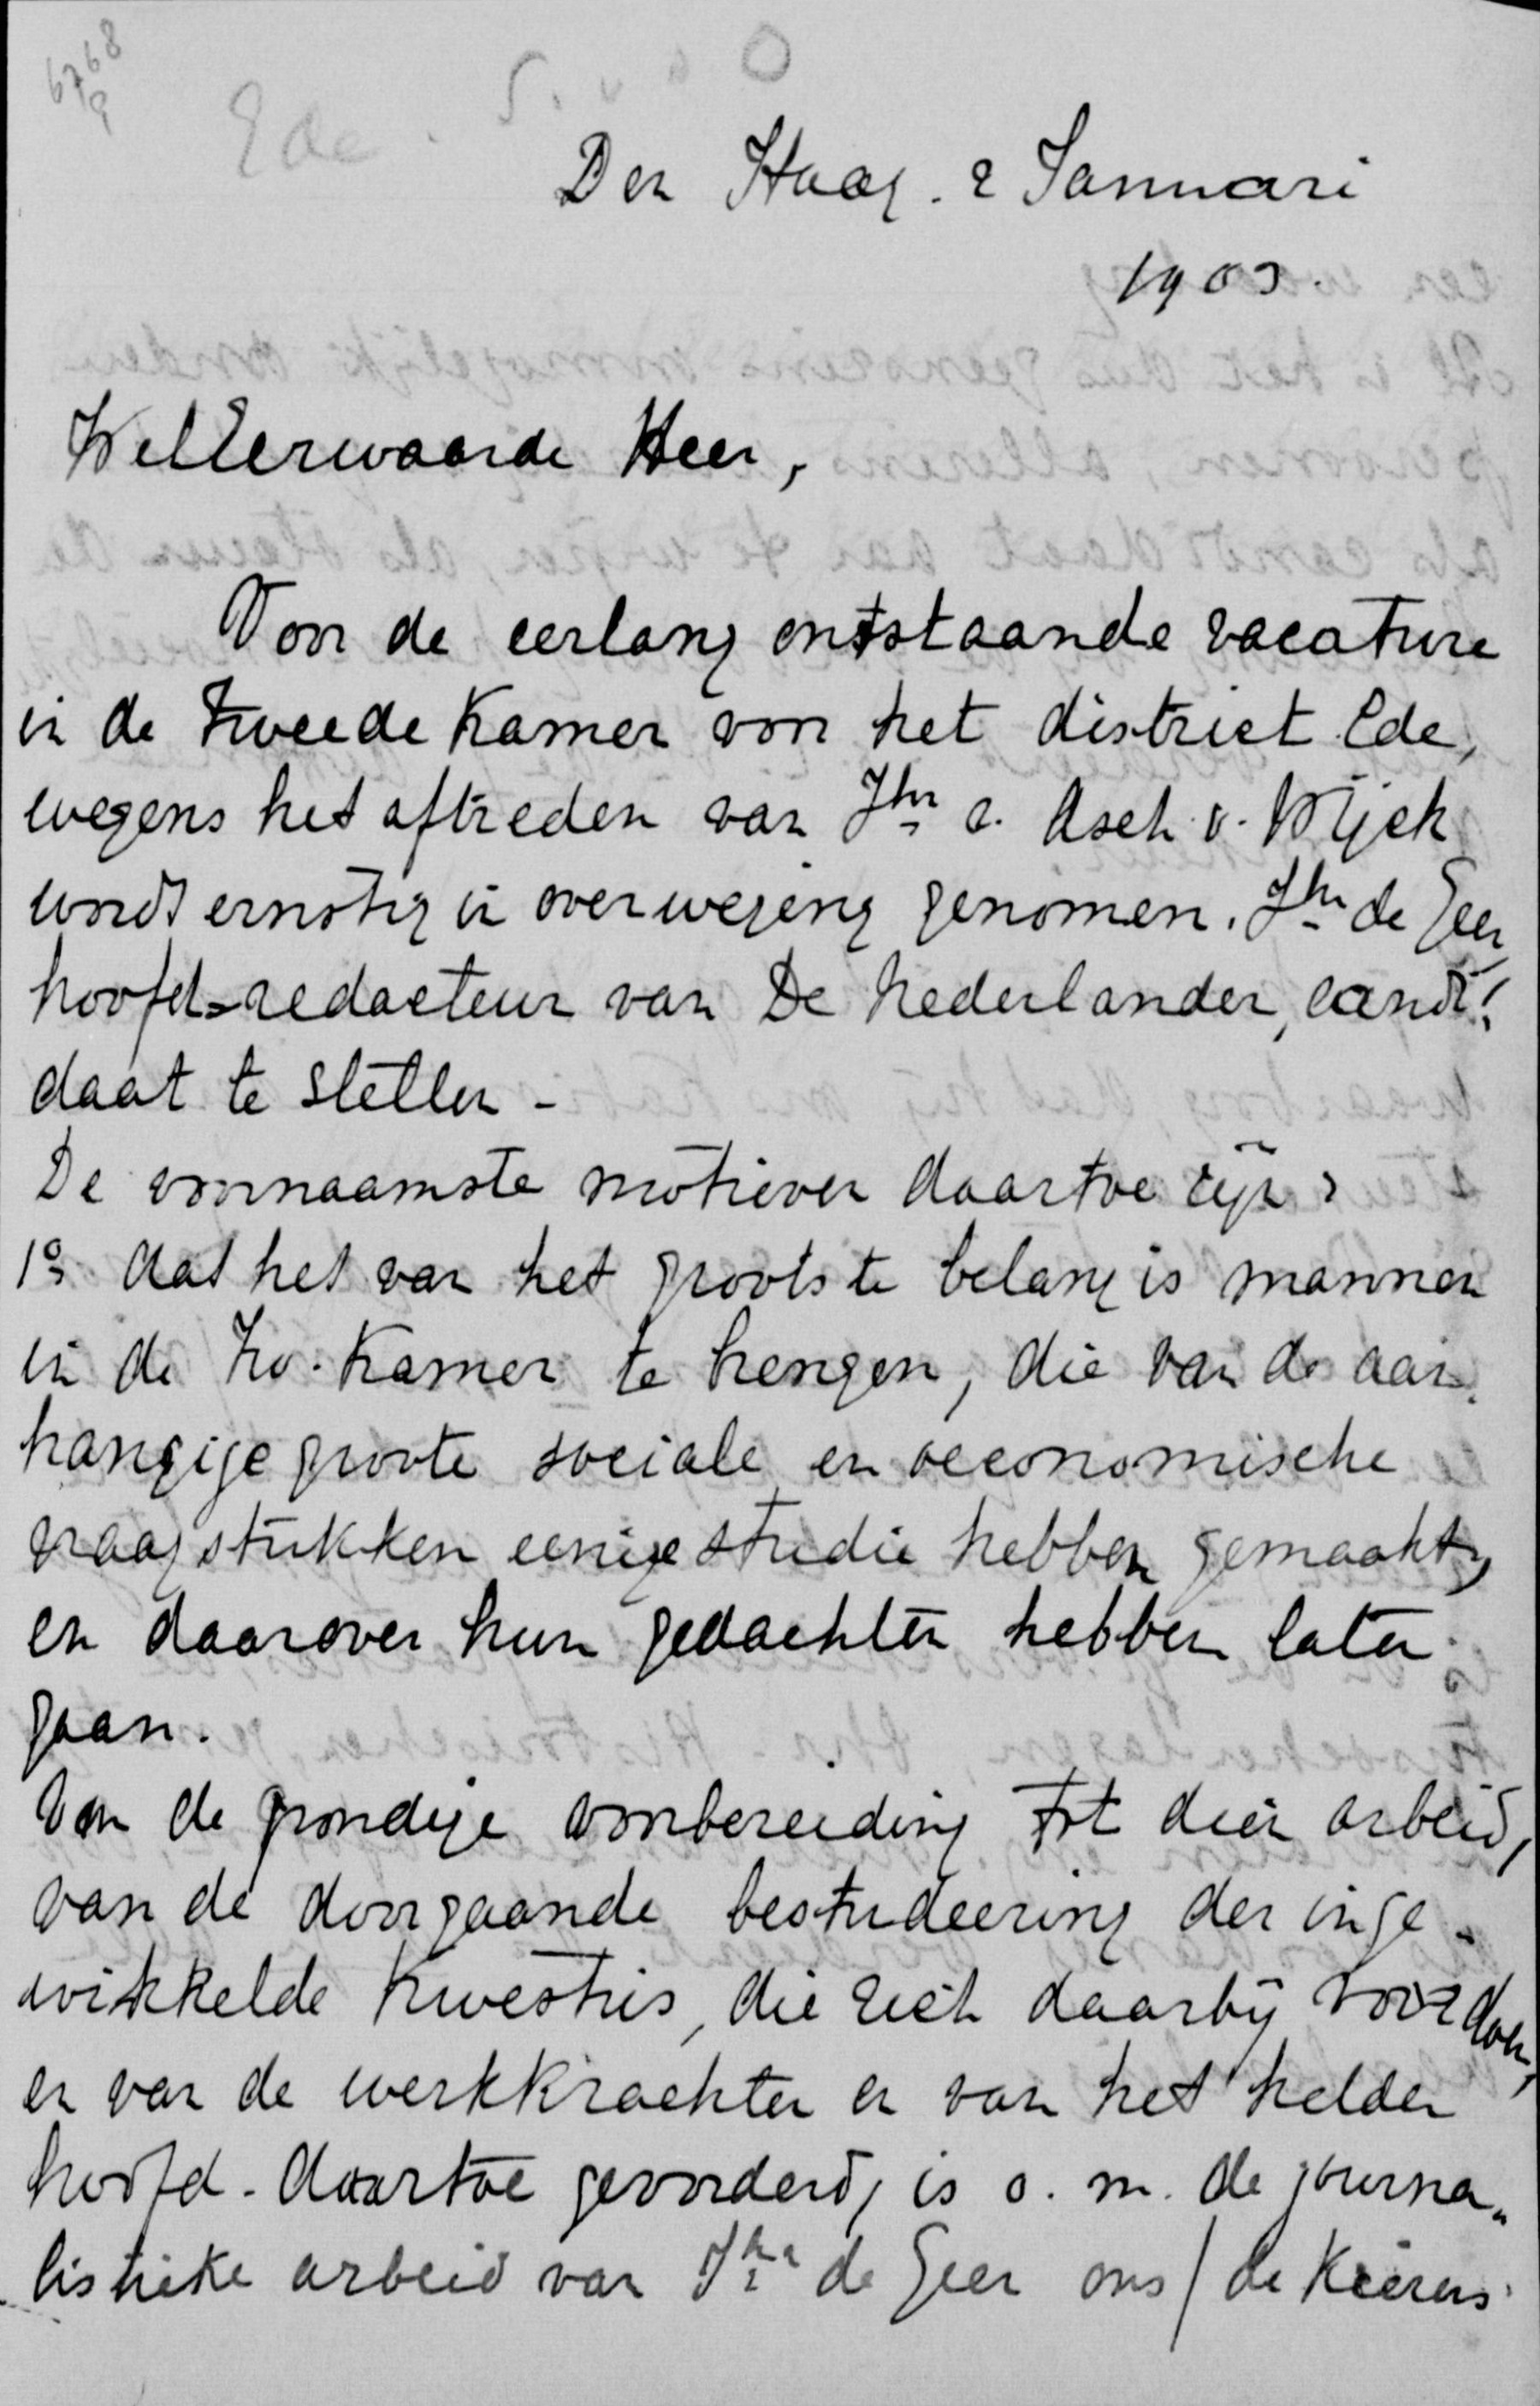 6768
9
Ede.
Den Haag. 2 Januari
1903.
WelEerwaarde Heer,
Voor de eerlang ontstaande vacature
in de Tweede Kamer voor het district Ede,
wegens het aftreden van Jhr v. Asch v. Wijck
wordt ernstig in overweging genomen. Jhr de Geer
hoofd-redacteur van De Nederlander, candi-
daat te stellen -
De voornaamste motieven daartoe zijn:
1o dat het van het grootste belang is mannen
in de Tw. Kamer te brengen, die van de aan-
hangige groote sociale en oeconomische
vraagstukken eenige studie hebben gemaakt,
en daarover hun gedachten hebben laten
gaan.
Van de grondige voorbereiding tot dien arbeid,
van de doorgaande bestudeering der inge-
wikkelde kwesties, die zich daarbij voordoen,
en van de werkkrachten en van het helder
hoofd. daartoe gevorderd, is o. m. de journa-
listieke arbeid van Jhr de Geer ons / de kiezers